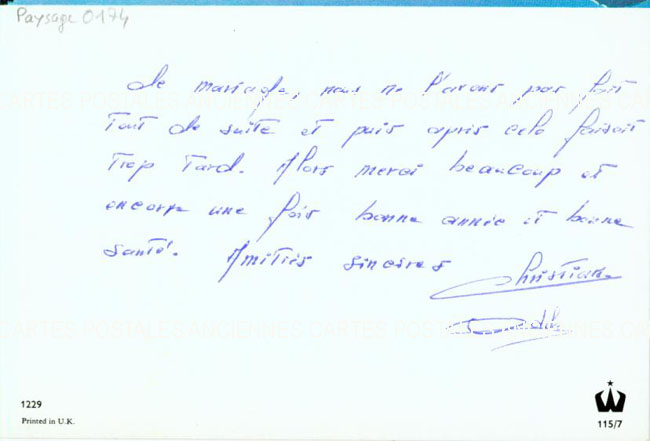 Paysage 0174
de mariage, nous ne l'avons pas fait
CARTES POSTALES ANCIENNES CARTES POSTALES ANCIENNES CARTES
tout de suite et puis après cela faisait
trop tard. Alors merci beaucoup et
encore une fois bonne année et bonne
santé. Amitiés sincères
Christian
Odile
CARTES POSTALES ANCIENNES CARTES POSTALES ANCIENNES CARTES
1229
Printed in U.K.
115/7